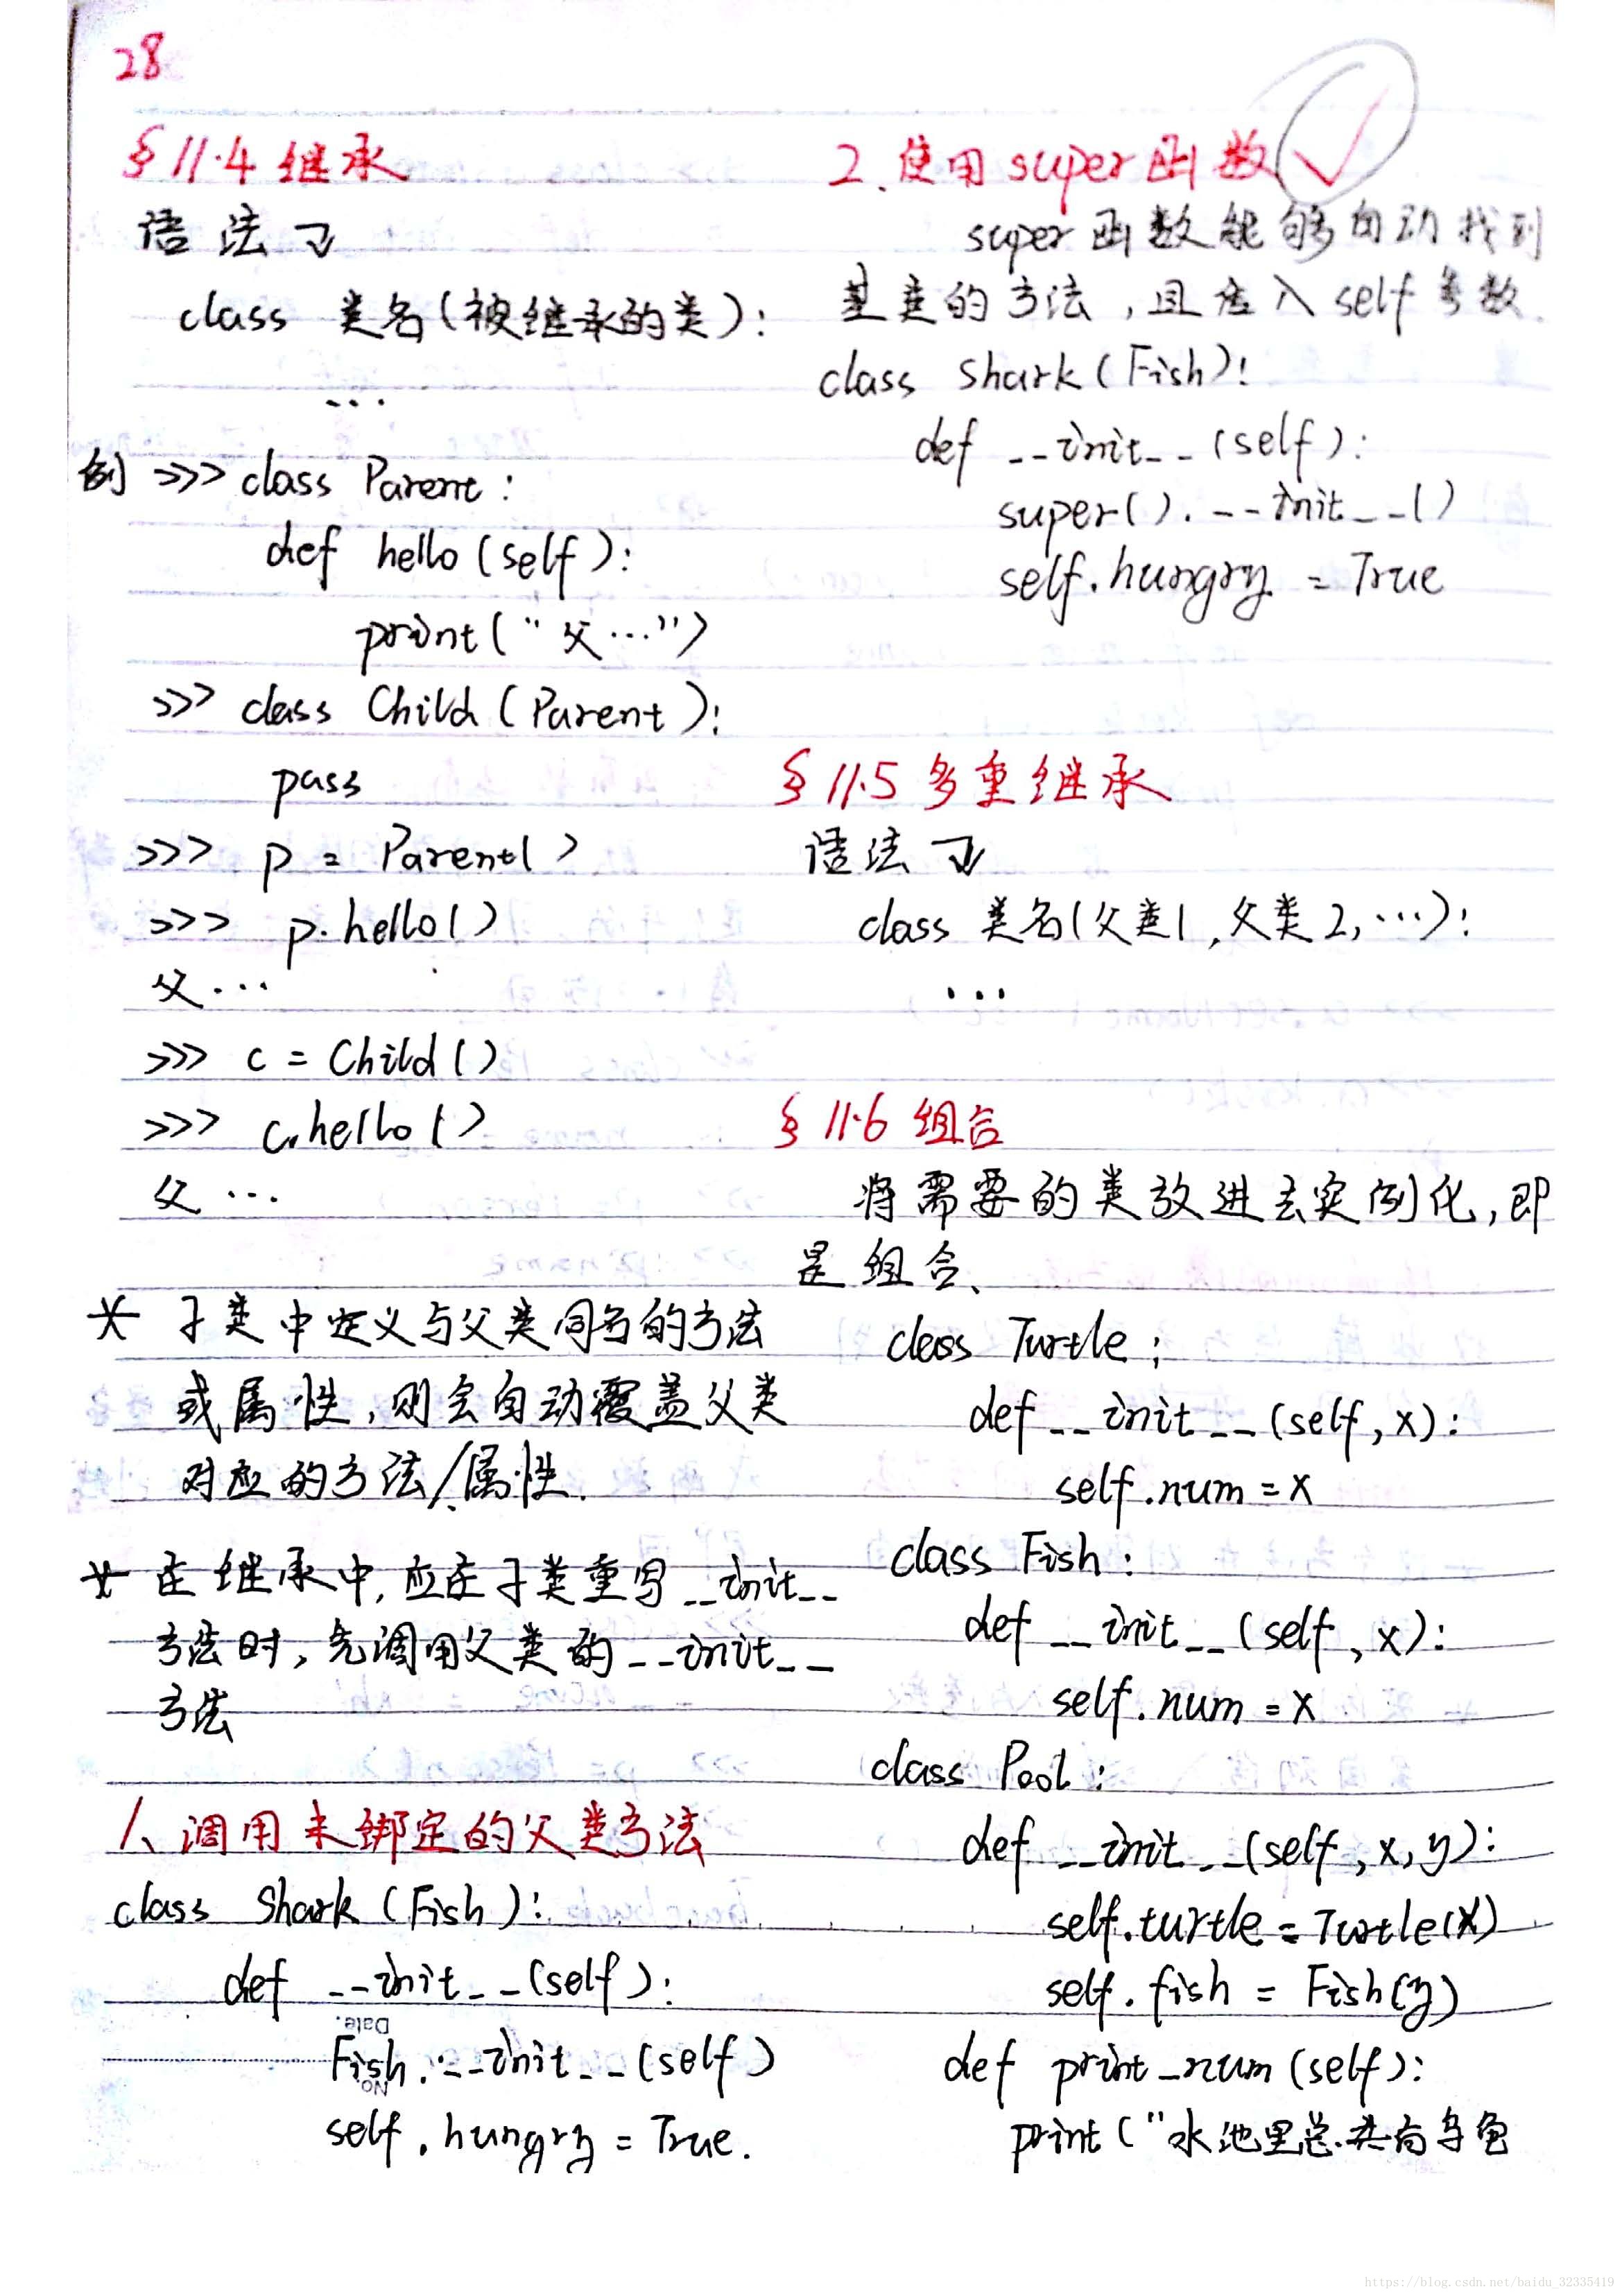 28
§ 11.4 继承
语法
class 类名(被继承的类):
...
例 >>> class Parent:
def hello(self):
print("父...")
>>> class Child(Parent):
pass
>>> p = Parent()
>>> p.hello()
父...
>>> c = Child()
>>> c.hello()
父...
* 子类中定义与父类同名的方法
或属性,则会自动覆盖父类
对应的方法/属性.
* 在继承中,应在子类重写__init__
方法时,先调用父类的__init__
方法
1、调用未绑定的父类方法
class Shark(Fish):
def __init__(self):
Date.
No
Fish.__init__(self)
self.hungry = True.
2、使用super函数
super函数能够自动找到
基类的方法,且传入self参数.
class Shark(Fish):
def __init__(self):
super().__init__()
self.hungry = True
§ 11.5 多重继承
语法
class 类名(父类1,父类2,...):
...
§ 11.6 组合
将需要的类放进去实例化,即
是组合、
class Turtle:
def __init__(self, x):
self.num = x
class Fish:
def __init__(self, x):
self.num = x
class Pool:
def __init__(self, x, y):
self.turtle = Turtle(x)
self.fish = Fish(y)
def print_num(self):
print("水池里总共有乌龟
https://blog.csdn.net/baidu_32335419